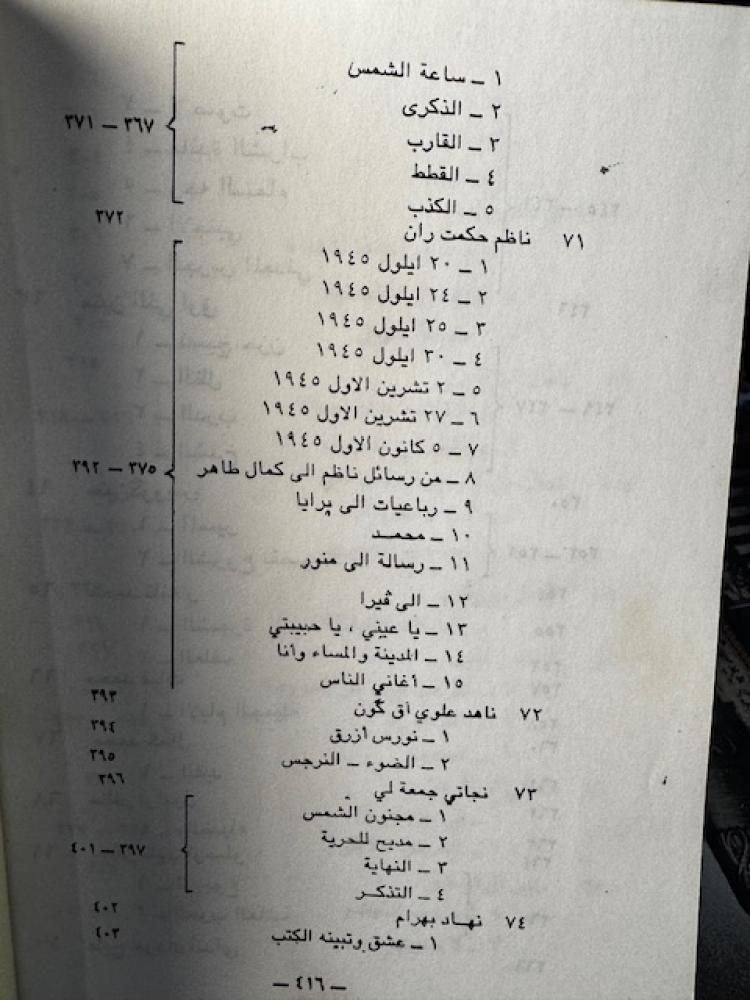 ١ ـ ساعة الشمس
٢ ـ الذكرى
٣ ـ القارب
٣٦٧ ـ ٣٧١
٤ ـ القطط
٥ ـ الكذب
٧١ ناظم حكمت ران ٣٧٢
١ ـ ٢٠ ايلول ١٩٤٥
٢ ـ ٢٤ ايلول ١٩٤٥
٣ ـ ٢٥ ايلول ١٩٤٥
٤ ـ ٣٠ ايلول ١٩٤٥
٥ ـ ٢ تشرين الاول ١٩٤٥
٦ ـ ٢٧ تشرين الاول ١٩٤٥
٧ ـ ٥ كانون الاول ١٩٤٥
٨ ـ من رسائل ناظم الى كمال طاهر ٣٧٥ ـ ٣٩٢
٩ ـ رباعيات الى پرايا
١٠ ـ محمـد
١١ ـ رسالة الى منور
١٢ ـ الى ڤيرا
١٣ ـ يا عيني ، يا حبيبتي
١٤ ـ المدينة والمساء وأنا
١٥ ـ أغاني الناس
٧٢ ناهد علوي آق گون ٣٩٣
١ ـ نورس أزرق ٣٩٤
٢ ـ الضوء ـ النرجس ٣٩٥
٧٣ نجاتي جمعة لي ٣٩٦
١ ـ مجنون الشمس
٢ ـ مديح للحرية
٣ ـ النهاية ٣٩٧ ـ ٤٠١
٤ ـ التذكـر
٧٤ نهـاد بهرام ٤٠٢
١ ـ عشق وتبينه الكتب ٤٠٣
ـ ٤١٦ ـ